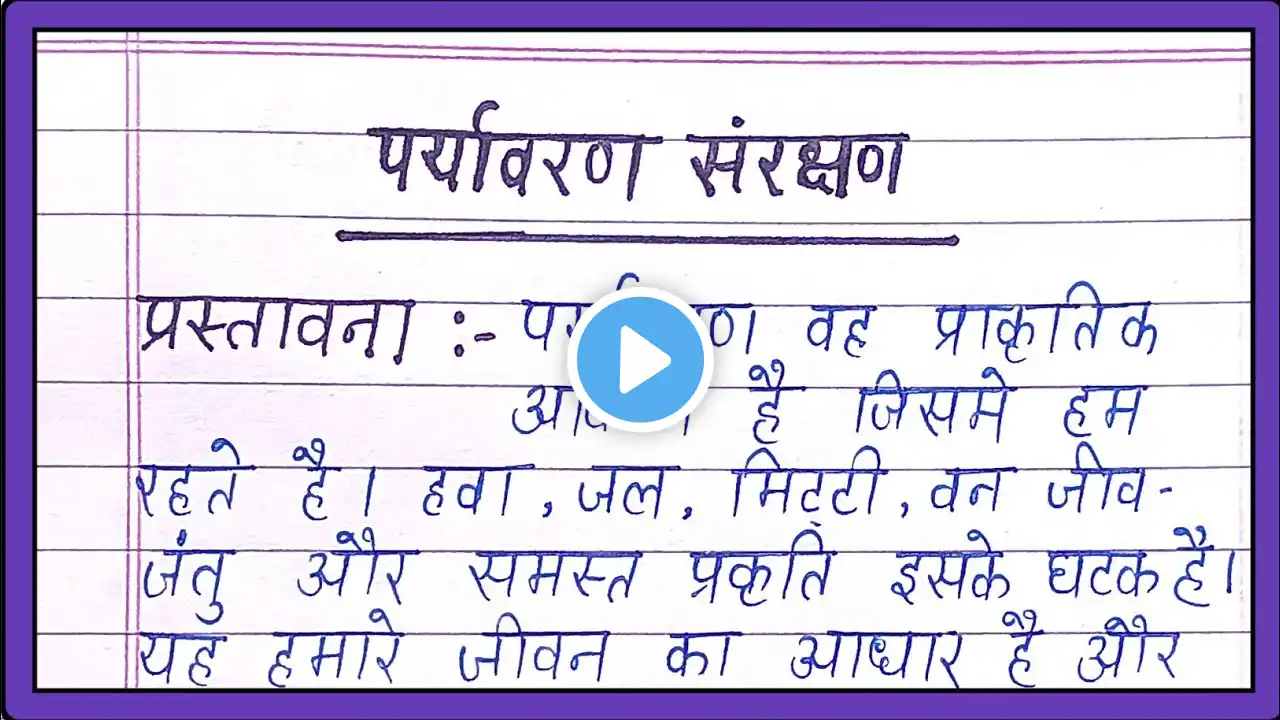 पर्यावरण संरक्षण
प्रस्तावना :- वह प्राकृतिक
है जिसमे हम
रहते है। हवा, जल, मिट्टी, वन जीव-
जंतु और समस्त प्रकृति इसके घटक है।
यह हमारे जीवन का आधार है और